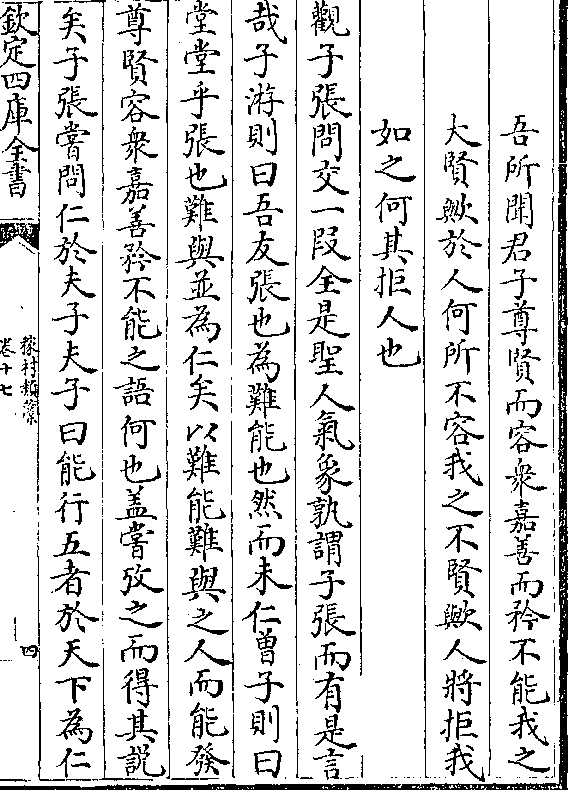 吾所聞君子尊賢而容衆嘉善而矜不能我之
大賢歟於人何所不容我之不賢歟人將拒我
如之何其拒人也
觀子張問交一段全是聖人氣象孰謂子張而有是言
哉子游則曰吾友張也為難能也然而未仁曽子則曰
堂堂乎張也難與並為仁矣以難能難與之人而能發
尊賢容衆嘉善矜不能之語何也盖嘗攷之而得其説
矣子張嘗問仁於夫子夫子曰能行五者於天下為仁
欽定四庫全書
稼村類藁
卷十七
四